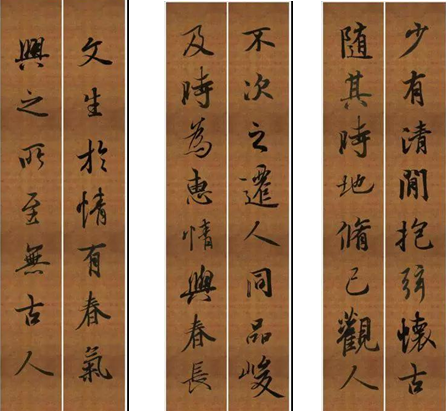 少有清聞抱弦懷古
隨其時地脩己觀人
不次之遷人同品峻
及時為惠情與春長
文生於情有春氣
興之所至無古人